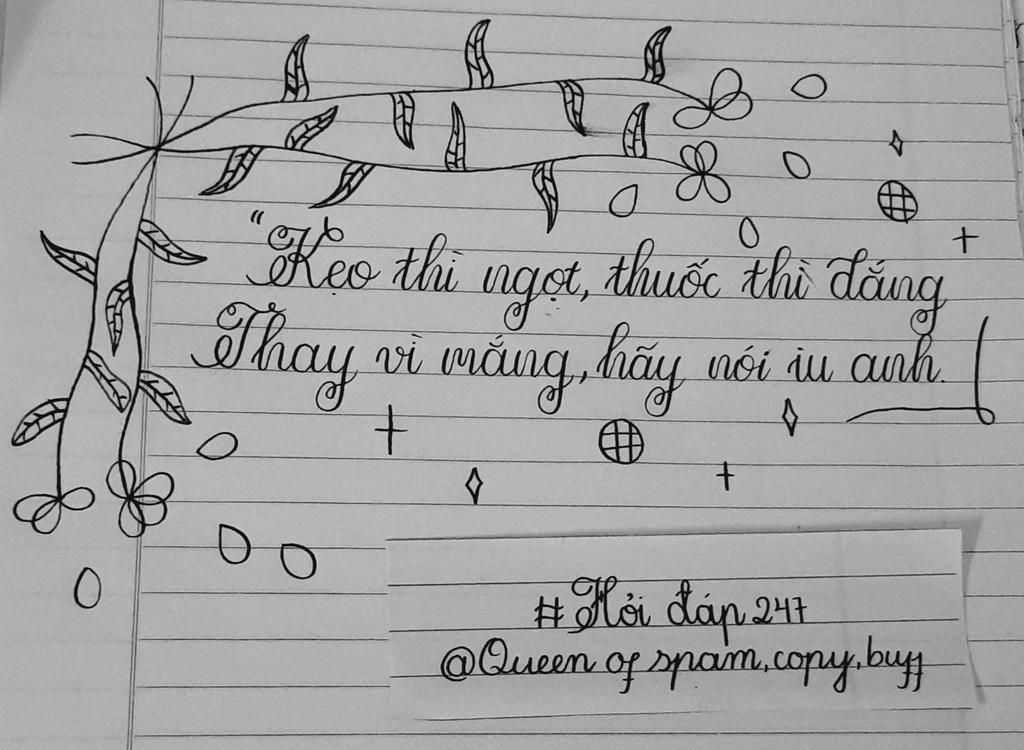 "Kẹo thì ngọt, thuốc thì đắng
Thay vì mắng, hãy nói iu anh.
#Hỏi đáp 247
@Queen of spam, copy, buff